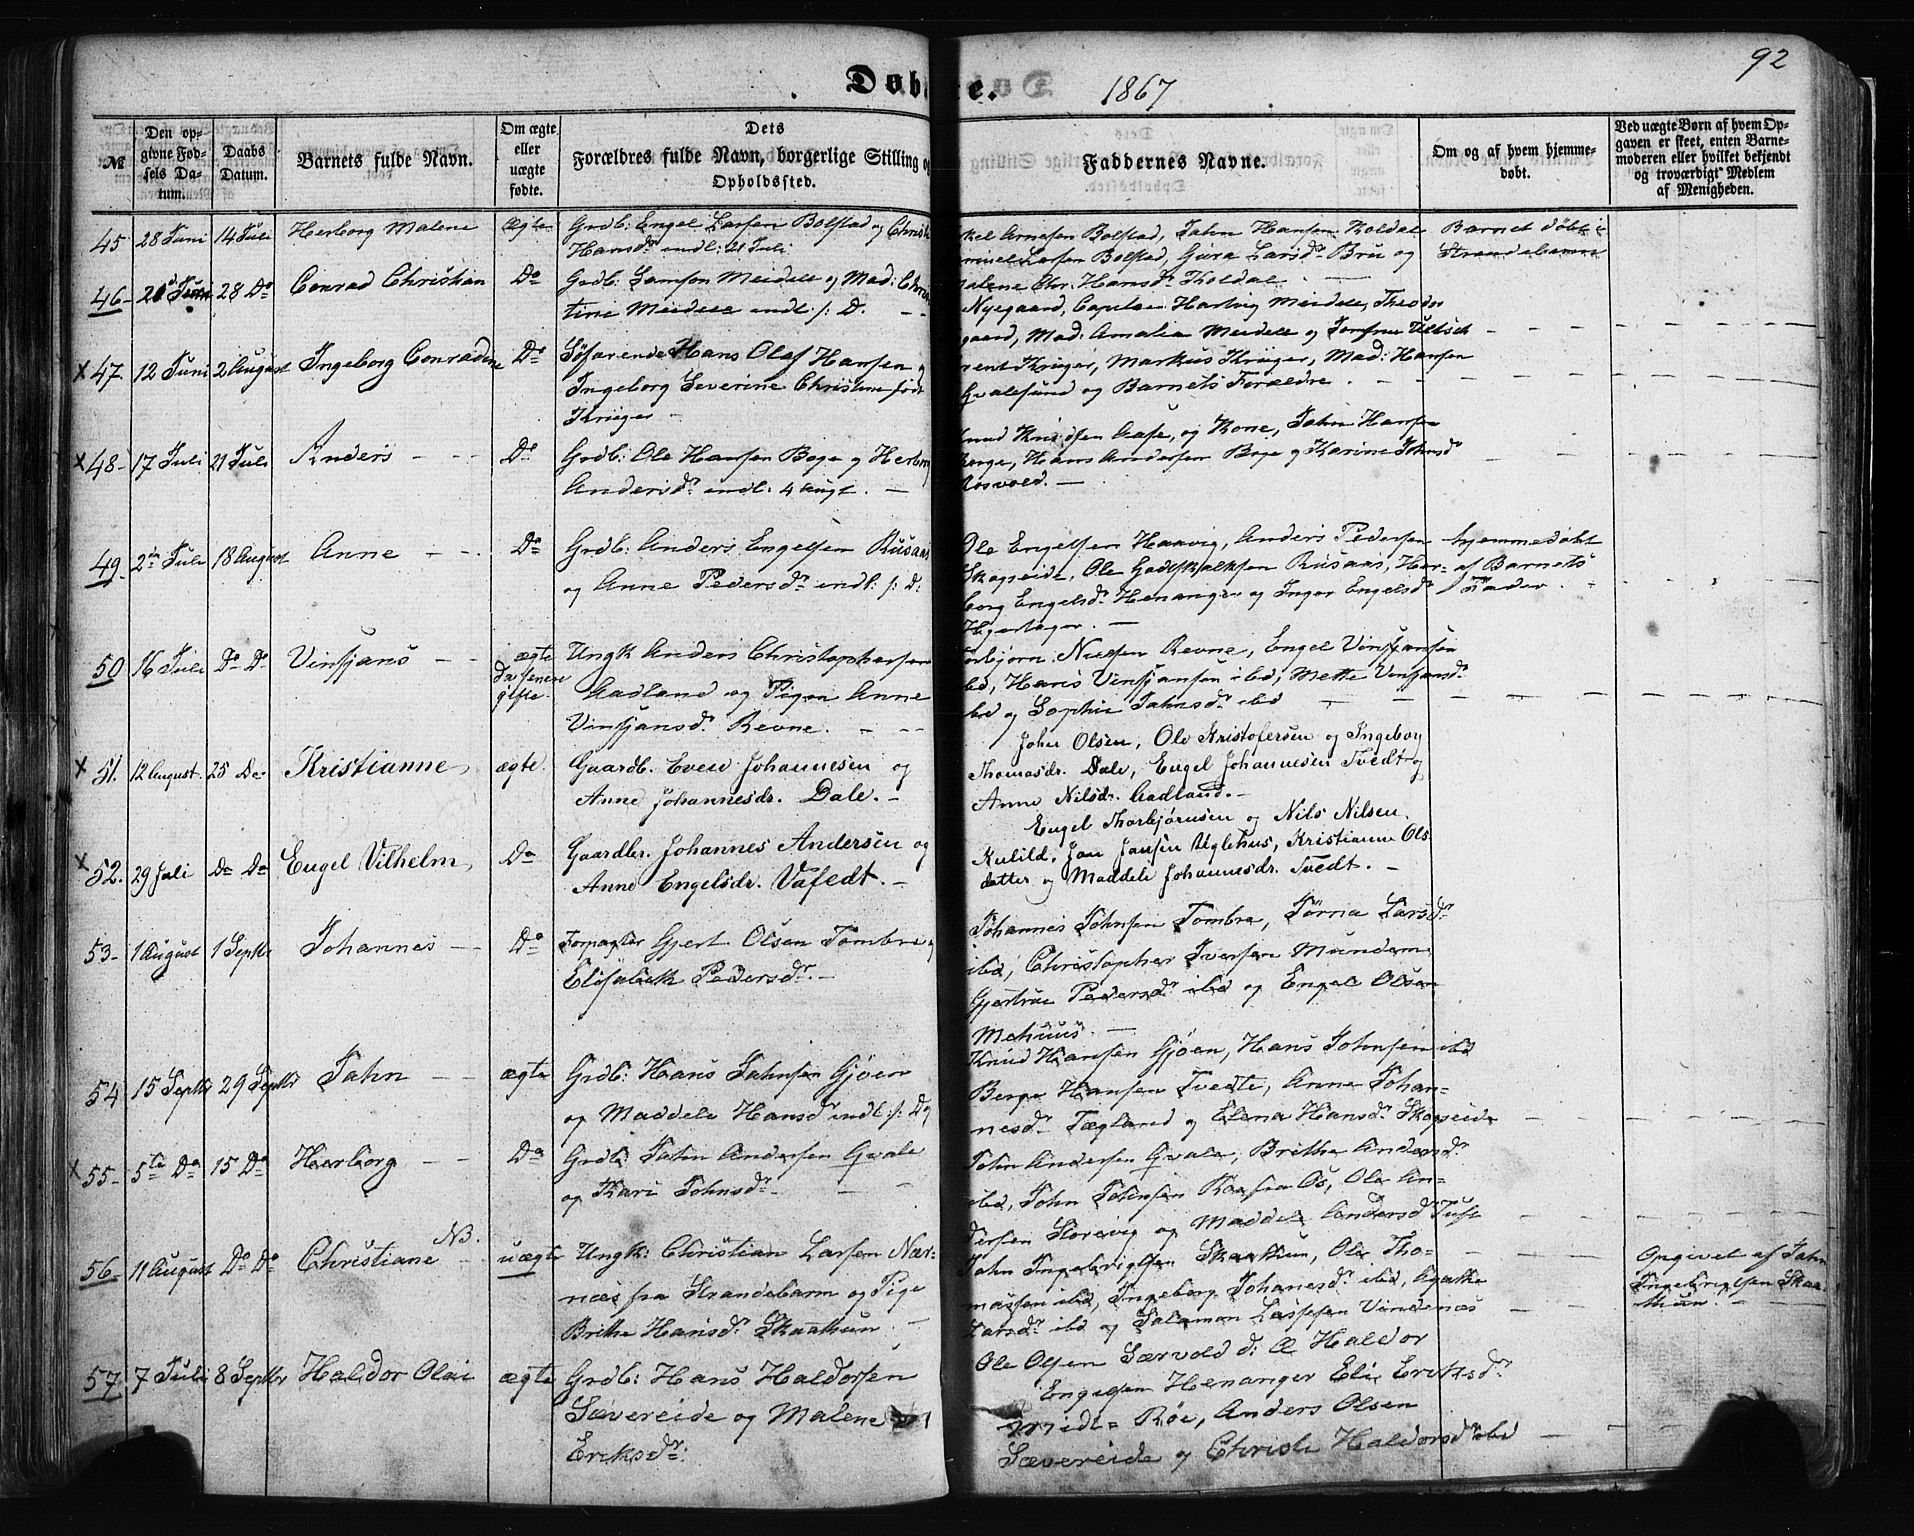 92
Døb  e. 1867
№ | Den opgivne Fødsels Datum. | Daabs Datum. | Barnets fulde Navn. | Om ægte eller uægte fødte. | Dets Forældres fulde Navn, borgerlige Stilling og Opholdssted. | Faddernes Navne. | Om og af hvem hjemmedøbt. | Ved uægte Børn af hvem Opgaven er skeet, enten Barnemoderen eller hvilket bekjendt og troværdigt Medlem af Menigheden.
45 28 Juni 14 Juli Herborg Malene Ægte Grdb: Engel Larsen Bolstad og Christi
Hansdr indl: 21 Juli
Arnesen Bolstad, John Hansen Koldal Barnet døbt i
Larsen Bolstad, Gura Larsdr Bru og Strandebarm
Chr. Hansdr Koldal —
46 28 Do Conrad Christian Do Grdb: Samson Meidele og Mad: Chris
tine Meidele indl /: D. — —
Nyegaard, Capitain Hartvig Meidele, Theodor
gaard, Mad: Amalia Meidele og Jomfrue
47 12 Juni 2 August Ingeborg Conradine Do Søfarende Hans Olaf Hansen og
Ingeborg Severine Christine født
Krüger —
Krüger, Markus Krüger, Mad: Hansen
Gvalesund og Barnets Forældre.
48 17 Juli 21 Juli Anders — — Do Grdb: Ole Hansen Boge og Herborg
Andersdr indl: 4 Augt. —
Knud Knudsen Aase, og Kone, John Hansen
Berge, Hans Andersen Boge og Karine Johnsdr
Rosvold. —
49 2en Juli 18 August Anne — — Do Grdb: Anders Engelsen Rusaas
og Anne Pedersdr indl: /: D:
Ole Engelsen Haavig, Anders Pedersen hjemmedøbt
Skogseide, Ole Godskalksen Rusaas, Her- af Barnets
borg Engelsdr Henanger og Inger Engelsdr Fader.
50 16 Juli Do Do Vinsjans — — ægte Ungk Anders Christophersen
Aadland og Pigen Anne
Vinsjansdr Revne. — —
Torbjørn Nielsen Revne, Engel Vinsjansen
ibd, Hans Vinsjansen ibd, Mette Vinsjansdr
ibd og Sophie Johnsdr ibd
51. 12 August 25 Do Kristianne, ægte. Gaardb. Even Johannesen og
Anne Johannesdr. Dale. —
John Olsen, Ole Kristofersen og Ingeborg
Thomasdr. Dale, Engel Johannesen Tvedt og
Anne Nilsdr. Aadland. —
52. 29 Juli Do Do Engel Vilhelm, Do Gaardbr. Johannes Andersen og
Anne Engelsdr. Vafedt. —
Engel Thorbjørnsen og Nils Nilsen.
Kulild, Jon Jansen Uglehus, Kristianne Ols
datter og Maddele Johannesdr. Tvedt. —
53 1 August 1 Septbr Johannes — Do Forpagter Gjert Olsen Tombre og
Elisabeth Pedersdr. —
Johannes Johnsen Tombre, Larsdr
ibd, Christopher Iversen Mundem
Gjertrue Pedersdr ibd og Engele Olsen
Mehuus. —
54 15 Septbr 29 Septbr John — — ægte Grdb: Hans Johnsen Gjøen
og Maddele Hansdr indl: /: D
Knud Hansen Gjøen, Hans Johnsen ibd
Berge Hansen Tvedte, Anne Johan-
nesdr Tægland og Elena Hansdr Skogseide
55 5te Do 15 Do Herborg — — Do Grdb: John Andersen Gvale
og Kari Johnsdr — —
John Andersen Gvale, Brithe Andersdr
ibd, John Johnsen Roe fra Os, Ole An-
dersen Storevig og Maddele Andersdr Tuft
56 11 August Do Do Christiane NB. — uægte Ungk: Christian Larsen Nær-
næs fra Strandebarm og Pige
Brithe Hansdr Skaathun. —
John Ingebrigtsen Skaathun, Ole Tho-
massen ibd, Ingeborg Johanesdr ibd, Agathe
Larsdr ibd og Salamon Lassesen Vindenæs
Opgivet af John
Ingebrigtsen Skaa-
thun. —
57 7 Juli 8 Septbr Haldor Olai ægte Grdb: Hans Haldorsen
Sævereide og Malene
Eriksdr:
Ole Olsen Særvold d: Æ Haldor
Engelsen Henanger Eli Eriksdr
Midt= Røe, Anders Olsen
Sævereide og Christi Haldorsdr ibd